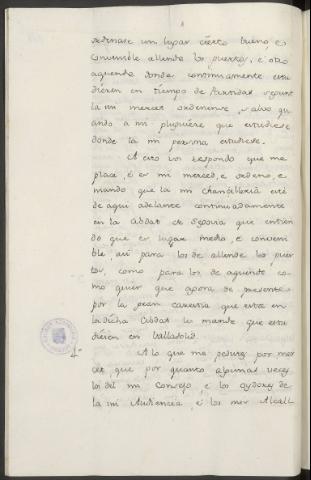 ordenase un lugar cierto bueno e
convenible allende los puertos, e otro
aquende donde continuamente estu
diesen en tiempo de partidas segunt
la mi merced ordenase, salvo qu
ando a mi pluguiere que estudiese
donde la mi persona estudiese.
A esto vos respondo que me
place, é es mi merced, e ordeno, e
mando que la mi Chancilleria esté
de aqui adelante continuadamente
en la Cibdat de Segovia que entien
do que es lugar medio, e conveni
ble, asi para los de allende los puer
tos, como para los de aquende co-
mo quier que agora de presente
por la gran carestia que esta en
la dicha Cibdat les mande que estu
diesen en Valladolid.
4- A lo que me pedistes por mer
cet, que por quanto algunas veces
los del mi Consejo, e los oydores de
la mi Audiencia, é los mis Alcall